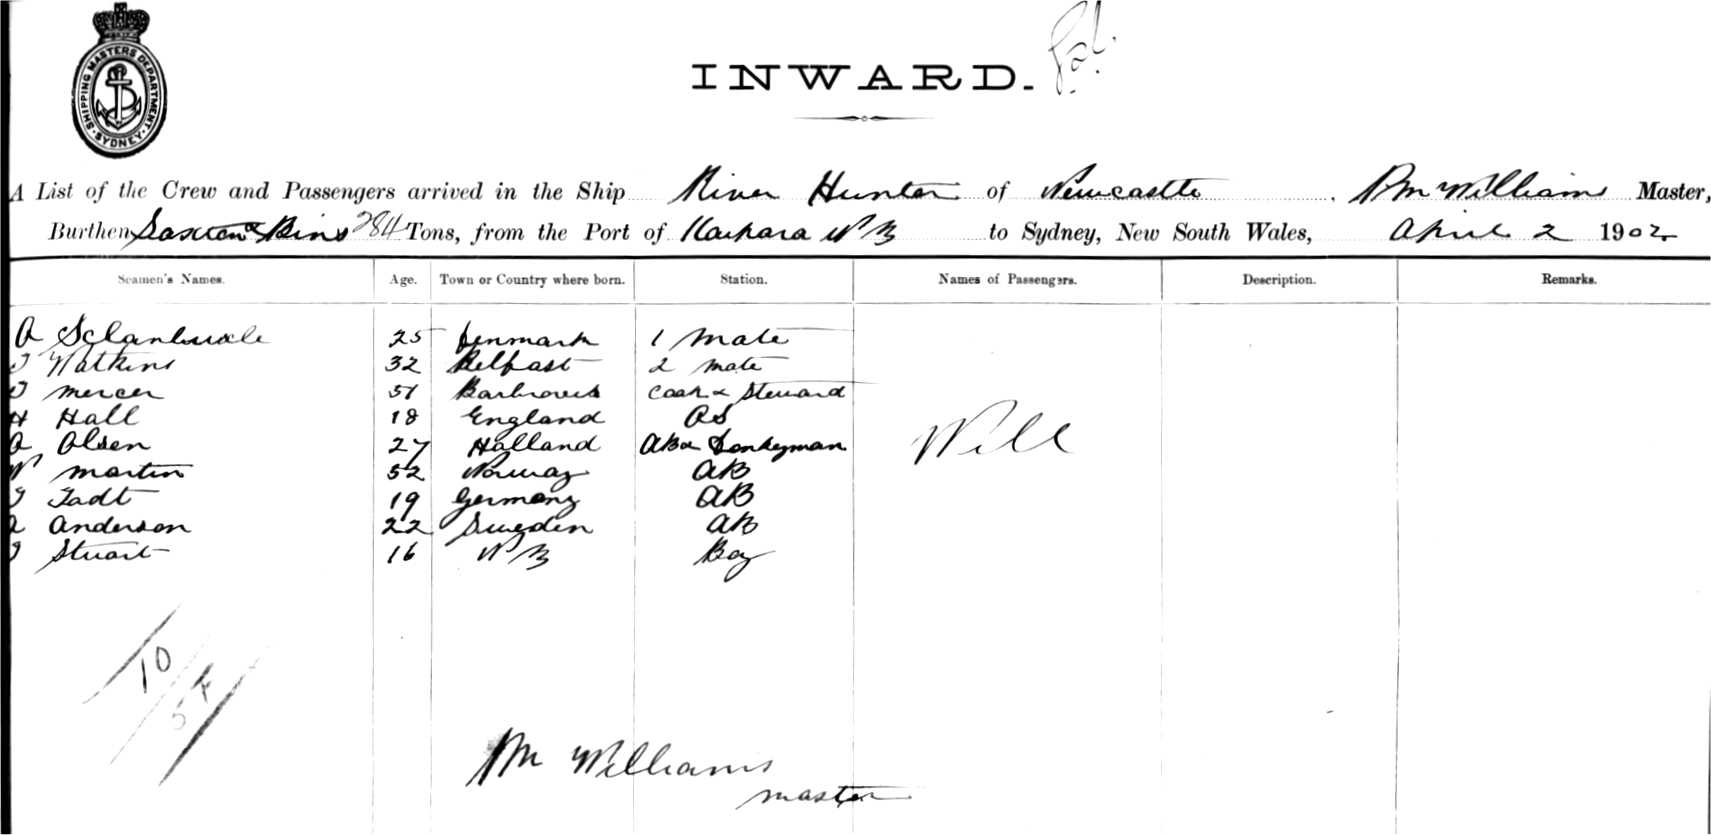 SHIPPING MASTERS DEPARTMENT · SYDNEY ·
INWARD.
A List of the Crew and Passengers arrived in the Ship River Hunter of Newcastle, Master,
Burthen 284 Tons, from the Port of Kaipara N Z to Sydney, New South Wales, April 2 1902
Seamen's Names. Age. Town or Country where born. Station. Names of Passengers. Description. Remarks.
25 Denmark 1 Mate
Watkins 32 Belfast 2 Mate
Mercer 51 Cook & Steward
H Hall 18 England OS
A Olsen 27 Holland AB & Donkeyman
W Martin 52 Norway AB
Tadt 19 Germany AB
A Anderson 22 Sweden AB
Stuart 16 N Z Boy
10
Williams
master